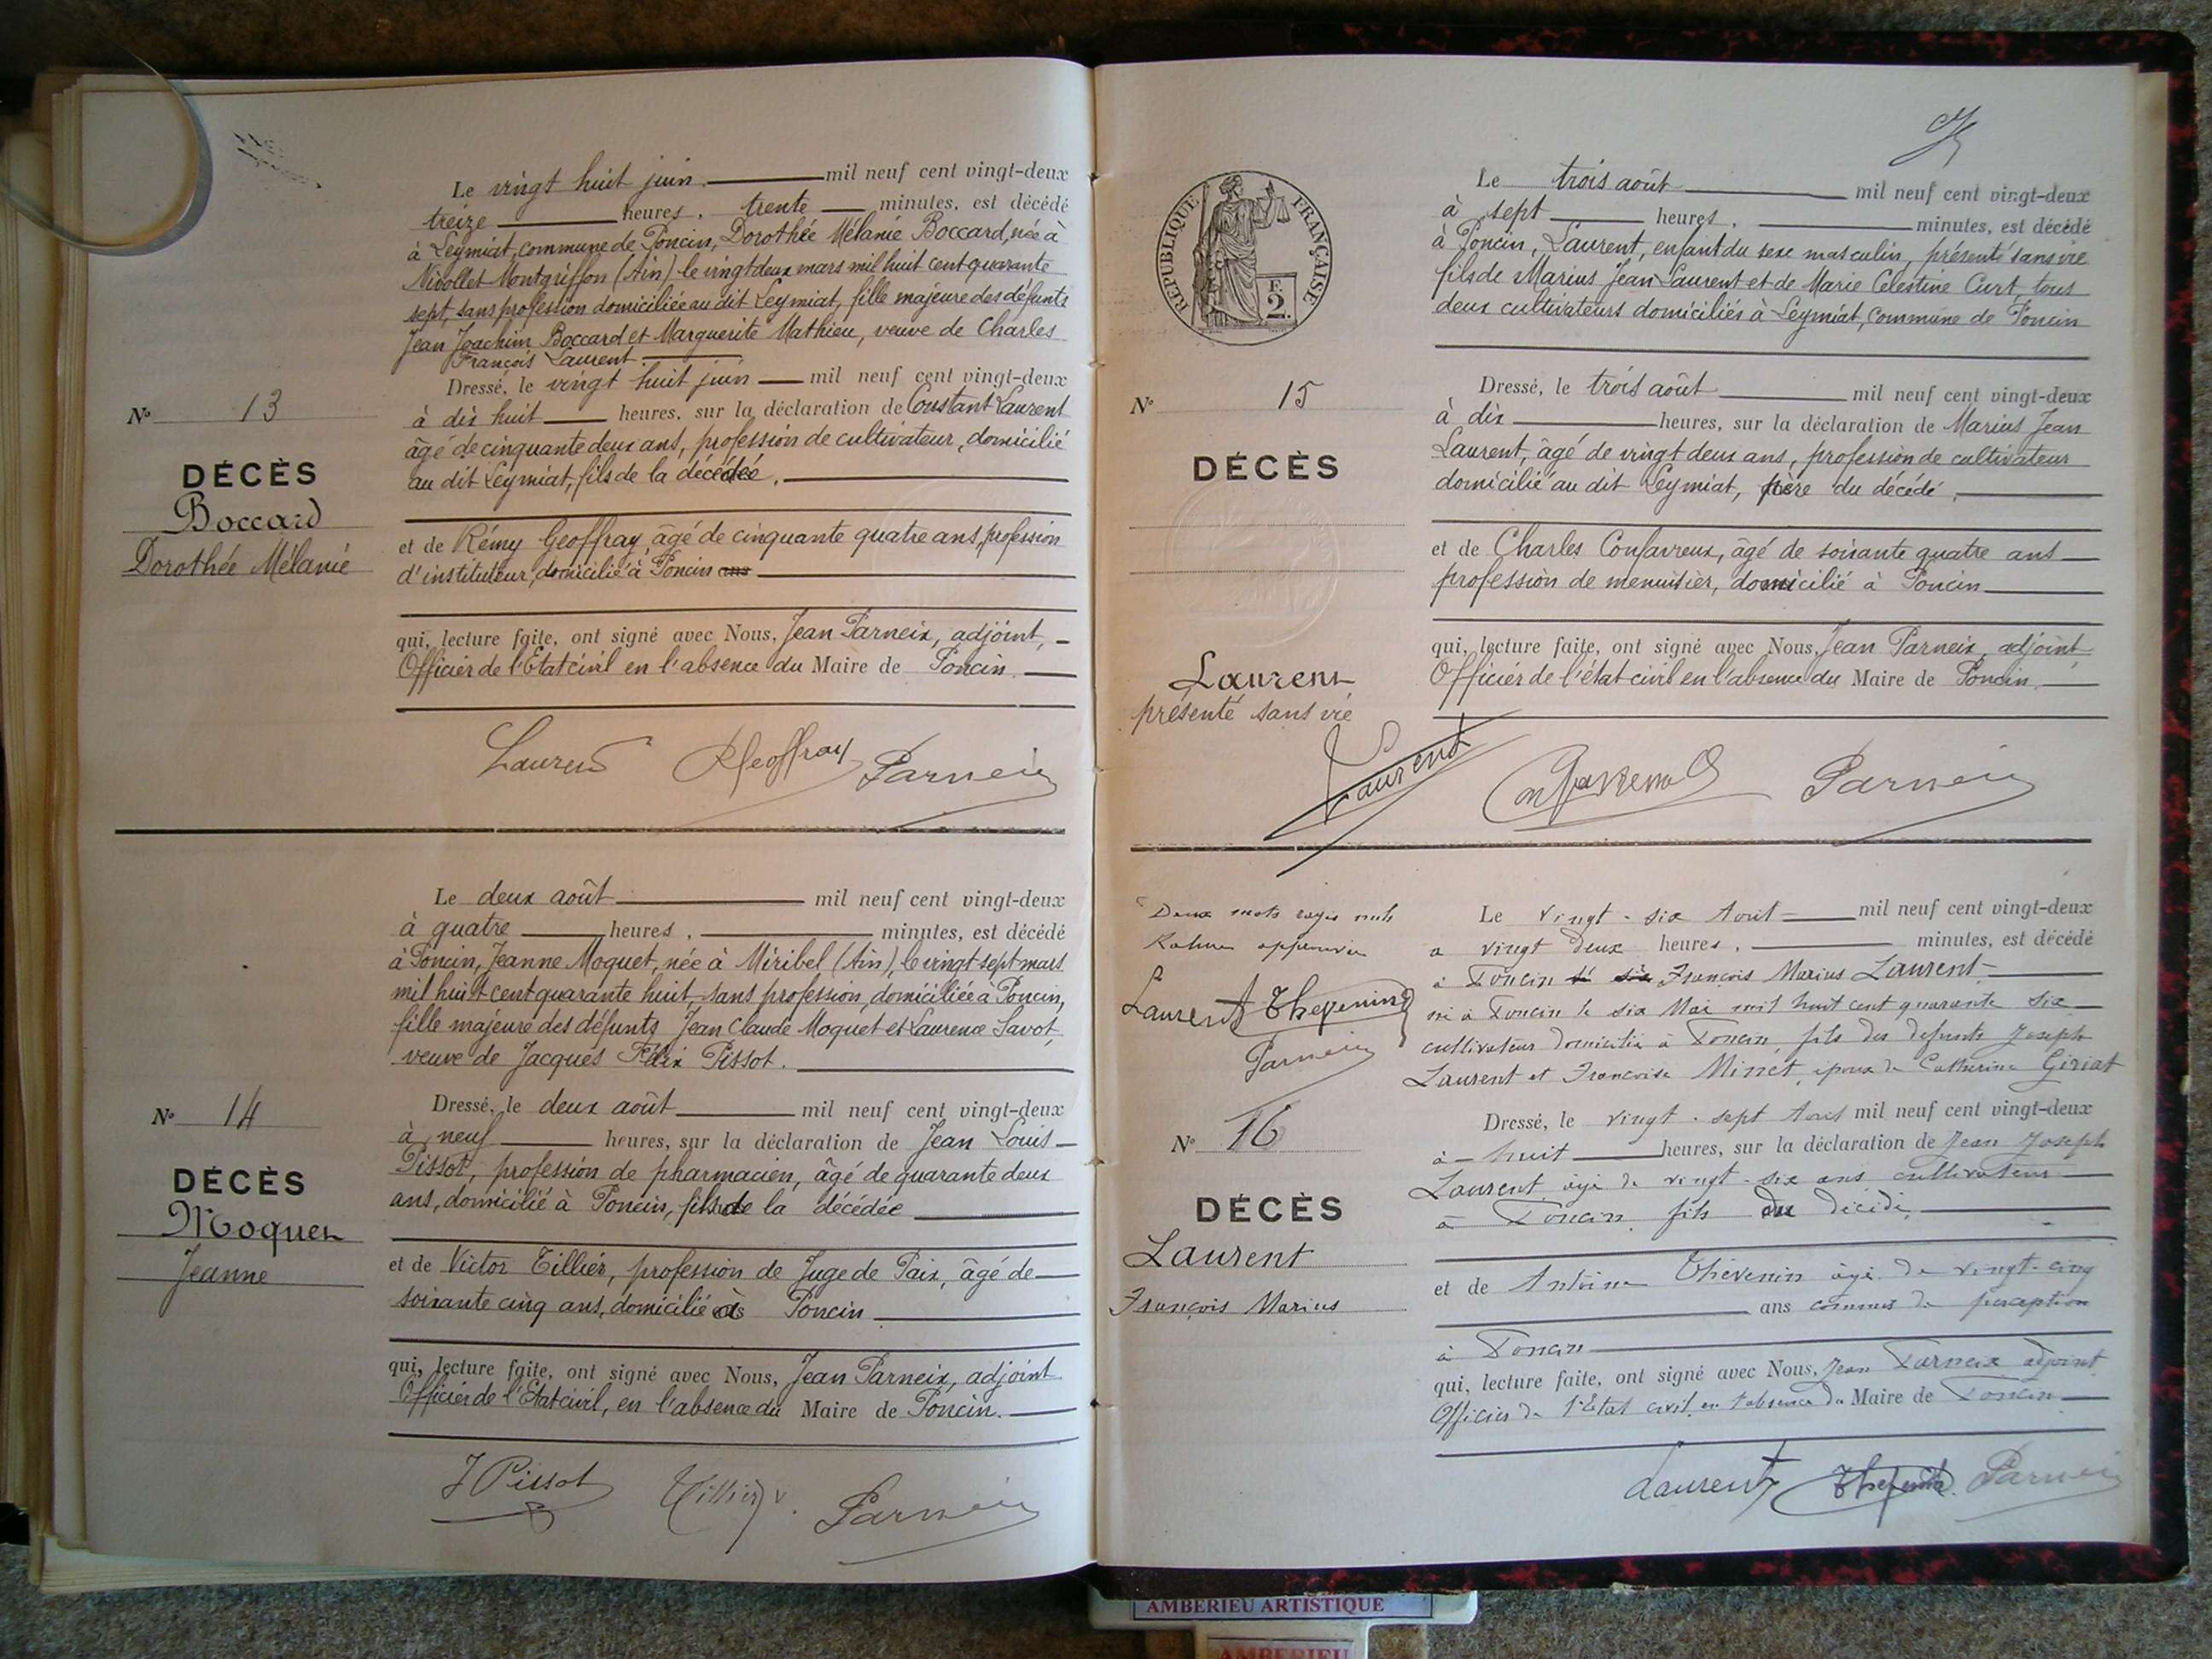 Le vingt huit juin. mil neuf cent vingt-deux
treize heures, trente minutes, est décédé
à Leymiat, commune de Poncin, Dorothée Mélanie Boccard, née à
Nivollet Montgriffon (Ain) le vingt deux mars mil huit cent quarante
sept, sans profession domiciliée au dit Leymiat, fille majeure des défunts
Jean Joachim Boccard et Marguerite Mathieu, veuve de Charles
François Laurent.
Dressé, le vingt huit juin mil neuf cent vingt-deux
à dix huit heures, sur la déclaration de Constant Laurent
âgé de cinquante deux ans, profession de cultivateur, domicilié
au dit Leymiat, fils de la décédée.
et de Rémy Geoffray, âgé de cinquante quatre ans, profession
d'instituteur, domicilié à Poncin ans
qui, lecture faite, ont signé avec Nous, Jean Parneix, adjoint,
Officier de l'Etat civil en l'absence du Maire de Poncin.
Laurent RGeoffray Parneix
N° 13
DÉCÈS
Boccard
Dorothée Mélanie
Le deux août mil neuf cent vingt-deux
à quatre heures, minutes, est décédé
à Poncin, Jeanne Moquet, née à Miribel (Ain), le vingt sept mars
mil huit cent quarante huit, sans profession, domiciliée à Poncin,
fille majeure des défunts Jean Claude Moquet et Laurence Savot,
veuve de Jacques Félix Pissot.
Dressé, le deux août mil neuf cent vingt-deux
à neuf heures, sur la déclaration de Jean Louis
Pissot, profession de pharmacien, âgé de quarante deux
ans, domicilié à Poncin, fils de la décédée
et de Victor Tillier, profession de Juge de Paix, âgé de
soixante cinq ans, domicilié à Poncin
qui, lecture faite, ont signé avec Nous, Jean Parneix, adjoint
Officier de l'Etat civil, en l'absence du Maire de Poncin.
J Pissot Tillier V. Parneix
N° 14
DÉCÈS
Moquet
Jeanne
REPUBLIQUE FRANÇAISE
F.
2.
Le trois août mil neuf cent vingt-deux
à sept heures, minutes, est décédé
à Poncin, Laurent, enfant du sexe masculin, présenté sans vie
fils de Marius Jean Laurent et de Marie Célestine Curt, tous
deux cultivateurs domiciliés à Leymiat, commune de Poncin
Dressé, le trois août mil neuf cent vingt-deux
à dix heures, sur la déclaration de Marius Jean
Laurent, âgé de vingt deux ans, profession de cultivateur
domicilié au dit Leymiat, père du décédé,
et de Charles Confavreux, âgé de soixante quatre ans
profession de menuisier, domicilié à Poncin
qui, lecture faite, ont signé avec Nous, Jean Parneix, adjoint,
Officier de l'état civil en l'absence du Maire de Poncin.
Laurent Confavreux Parneix
N° 15
DÉCÈS
Laurent
présenté sans vie
Deux mots rayés nuls
approuvée
Laurent Thevenin
Parneix
Le vingt-six Aout mil neuf cent vingt-deux
a vingt deux heures, minutes, est décédé
à Poncin François Marius Laurent
né à Poncin le six Mai mil huit cent quarante six
cultivateur domicilié à Poncin, fils des defunts Joseph
Laurent et Francoise Minet, époux de Catherine Giriat
Dressé, le vingt-sept Aout mil neuf cent vingt-deux
à huit heures, sur la déclaration de Jean Joseph
Laurent âgé de vingt-six ans cultivateur
à Poncin fils du décédé
et de Antoine Thevenin âgé de vingt-cinq
ans commis de perception
à Poncin
qui, lecture faite, ont signé avec Nous, Jean Parneix adjoint
Officier de l'Etat civil en l'absence du Maire de Poncin
Laurent Thevenin Parneix
N° 16
DÉCÈS
Laurent
François Marius
AMBERIEU ARTISTIQUE
AMBERIEU